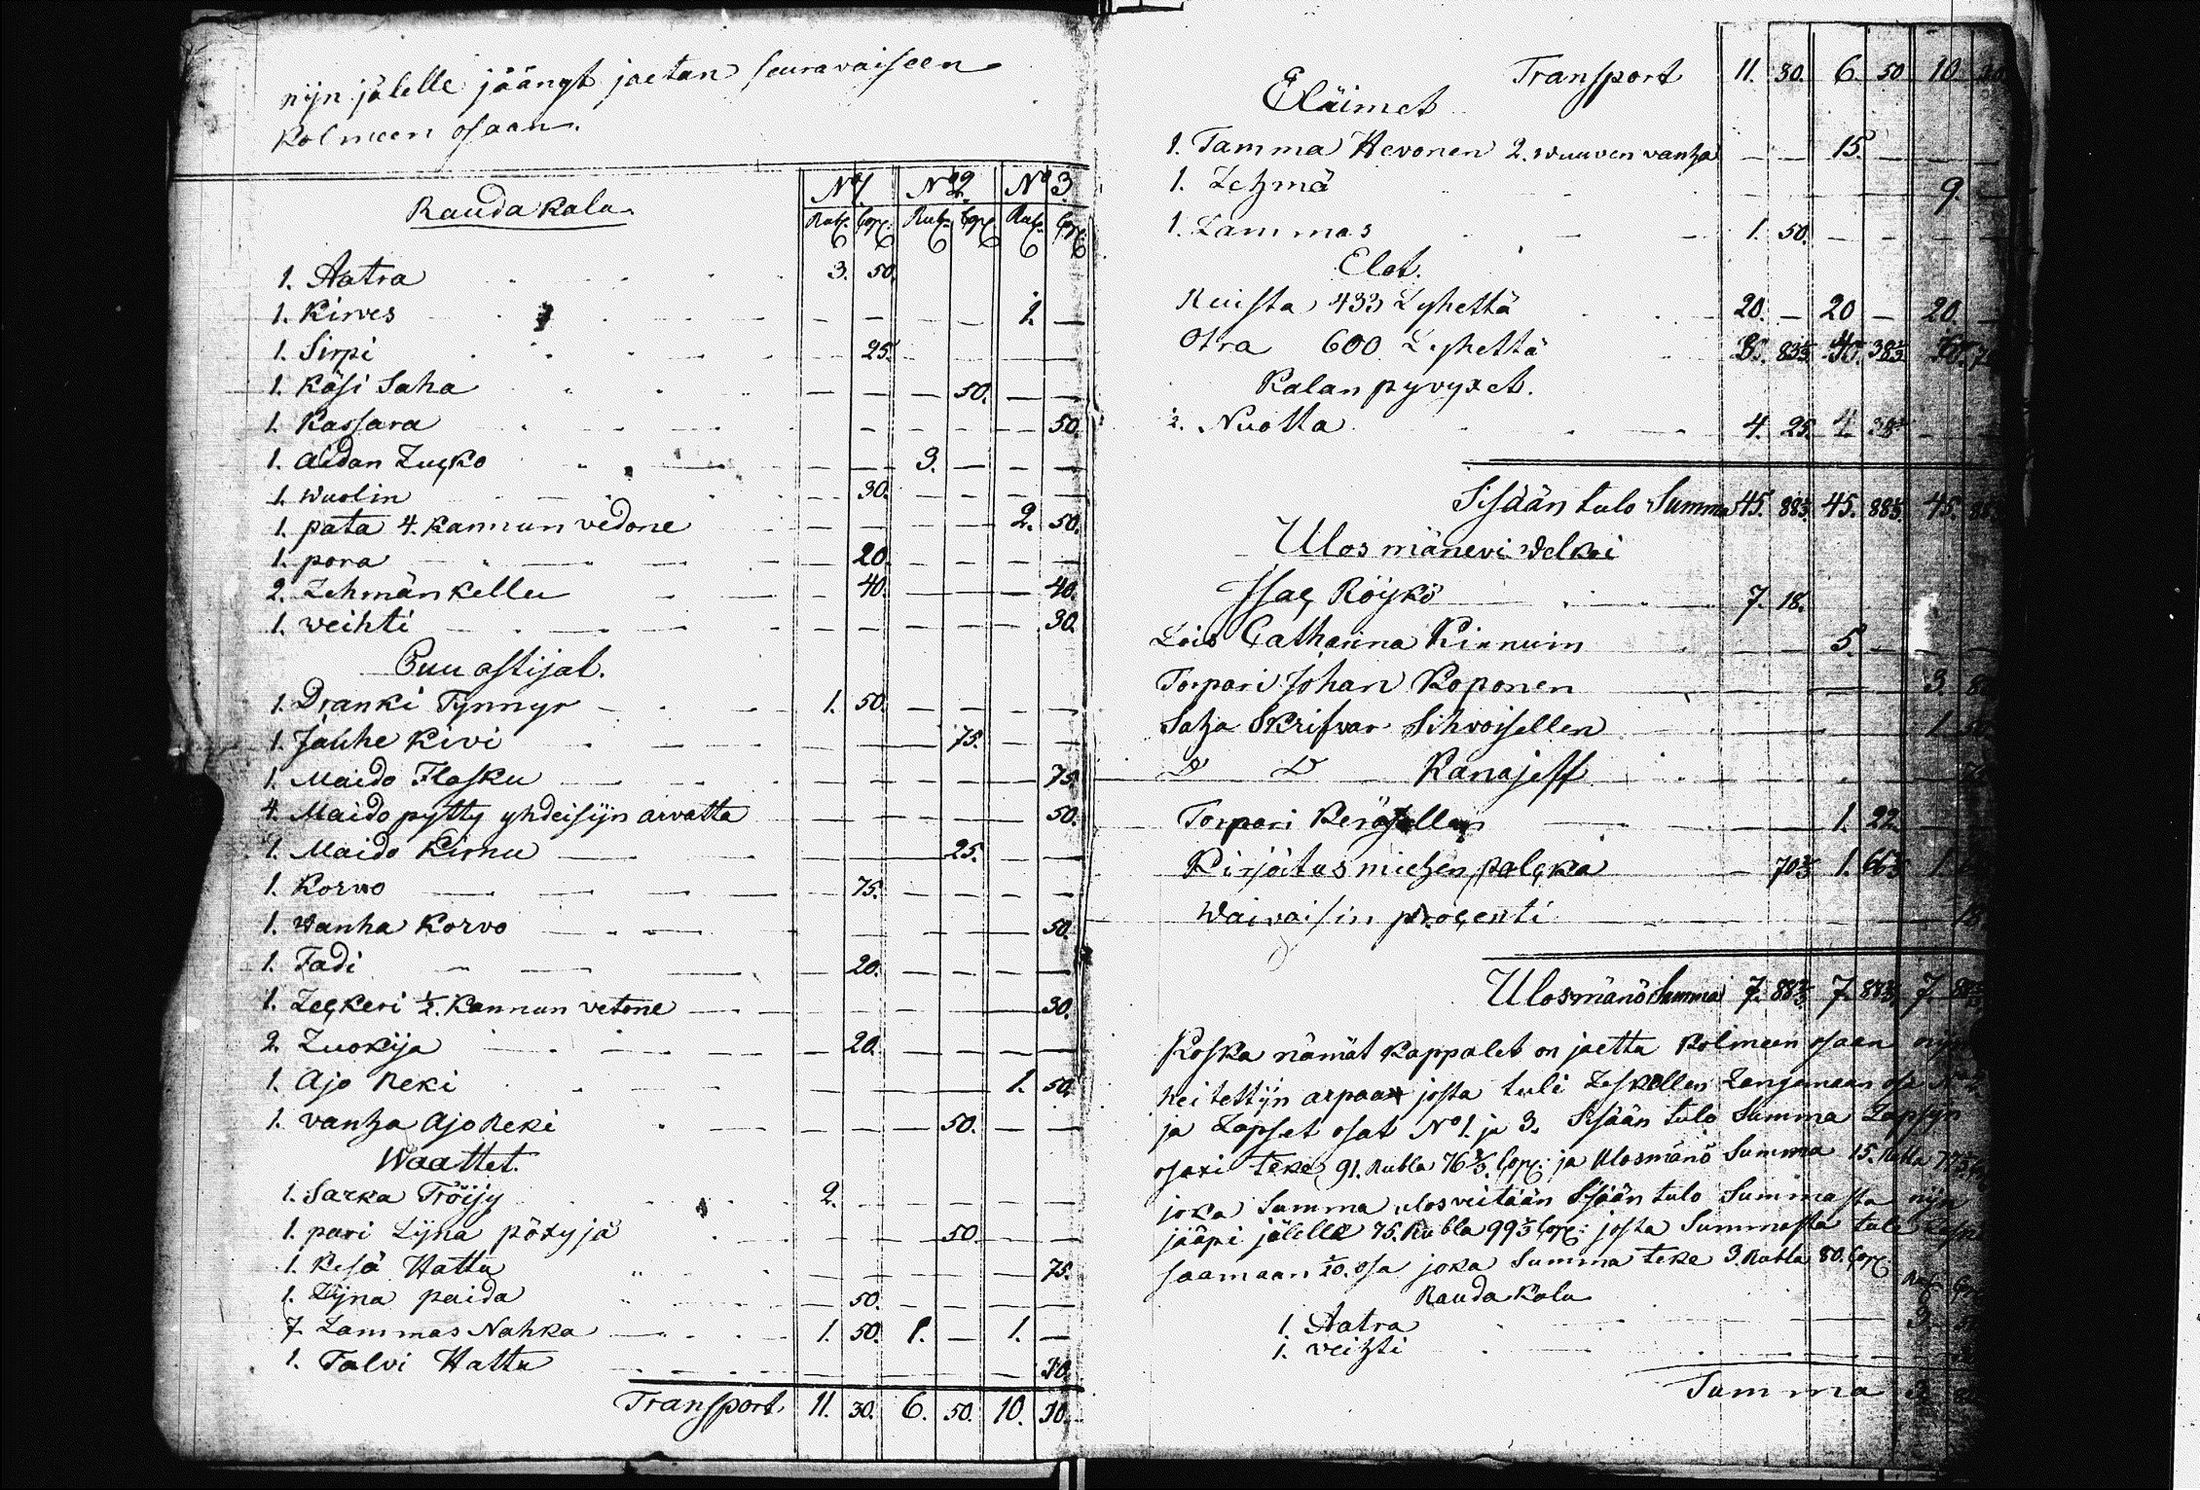 nijn jälelle jäänyt jaetan seuravaiseen
Kolmeen osaan.
No 1. No 2. No 3.
Rauda Kalu.
Rub. Cop. Rub. Cop. Rub. Cop.
1. Aatra 3. 50.
1. Kirves — — — — 1. —
1. Sirpi 25. — — — —
1. Käsi Saha — — — 50. — —
1. Kassara — — — — — 50.
1. Aidan Zuçko — — 3. — — —
1. Wuolin — 30. — — — —
1. pata 4. Kannun vedone — — — — 2. 50.
1. pora — 20. — — — —
2. Zehmän kellu — 40. — — — 40.
1. Veihti — — — — — 30.
Puu astijat.
1. Dranki Tynnyr 1. 50. — — — —
1. Jauhe Kivi — — — 75. — —
1. Maido Flasku — — — — — 75.
4. Maido pytty yhdeisijn arvattu — — — — — 50.
1. Maido Kirnu — — — 25. — —
1. Korvo — 75. — — — —
1. Wanha Korvo — — — — — 50.
1. Tadi — 20. — — — —
1. Zeçkeri ½. Kannun vetone — — — — — 30.
2. Zuokija — 20. — — — —
1. Ajo Reki — — — — 1. 50.
1. vanha Ajo Reki — — — 50. — —
Waattet.
1. Sarka Tröijy 2. — — — — —
1. pari Lijna pöxyjä — — — 50. — —
1. Kesä Hattu — — — — — 75.
1. Lijna paida — 50. — — — —
7. Lammas Nahka 1. 50. 1. — 1. —
1. Talvi Hattu — — — — — 30.
Transport 11. 30. 6. 50. 10. 30.
Transport 11. 30. 6. 50 10.
Eläimet
1. Tamma Hevonen 2. wuuven vanha — — 15. — — —
1. Lehmä — — — — 9. —
1. Lammas 1. 50. — — — —
Elot.
Ruista 433 Lyhettä 20. — 20 — 20. —
Otra 600 Lyhettä
Kalan pyvyxet.
½. Nuotta 4. 25. 4.
Sisään tulo Summa 45. 88⅓. 45. 88⅓. 45.
Ulos mänevi Velkoi
Isaç Röykö 7. 18.
Lois Catharina Kinnuin — — 5. — — —
Torpari Johan Koponen — — — — 3.
Satza Skrifvar Sihvoisellen — — — — 1.
D D Kanajeff — — — — —
Torpari Keräsellen — — 1. 22. — —
Kirjoitus miehen palçka — 70⅓ 1. 66⅓ 1.
Waivaisin proçenti
Ulosmänö Summa 7. 88⅓ 7. 88⅓. 7.
Koska nämät Kappalet on jaettu Kolmeen osaan nijn
heitettijn arpaan josta tuli Leskellen Zenjaneen osa No 2.
ja Lapset osat No 1. ja 3. Sisään tulo Summa Lapsijn
osaxi teke 91. Rubla 76⅔ Cop: ja Ulosmänö Summa 15. Rubla
joka Summa ulosveitään Sisään tulo Summasta nijn
jääpi jälelle 75. Rubla 99⅓ Cop: josta Summasta tule
saamaan 1/20. osa joka Summa teke 3. Rubla 80. Cop:
Rauda Kalu Rub. Cop.
1. Aatra 3.
1. veihti
Summa 3.